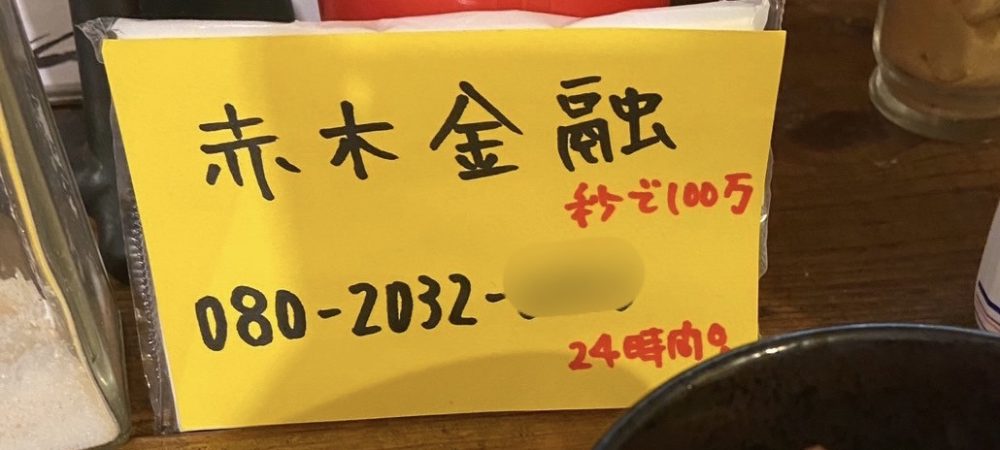 赤木金融
秒で100万
080-2032-
24時間